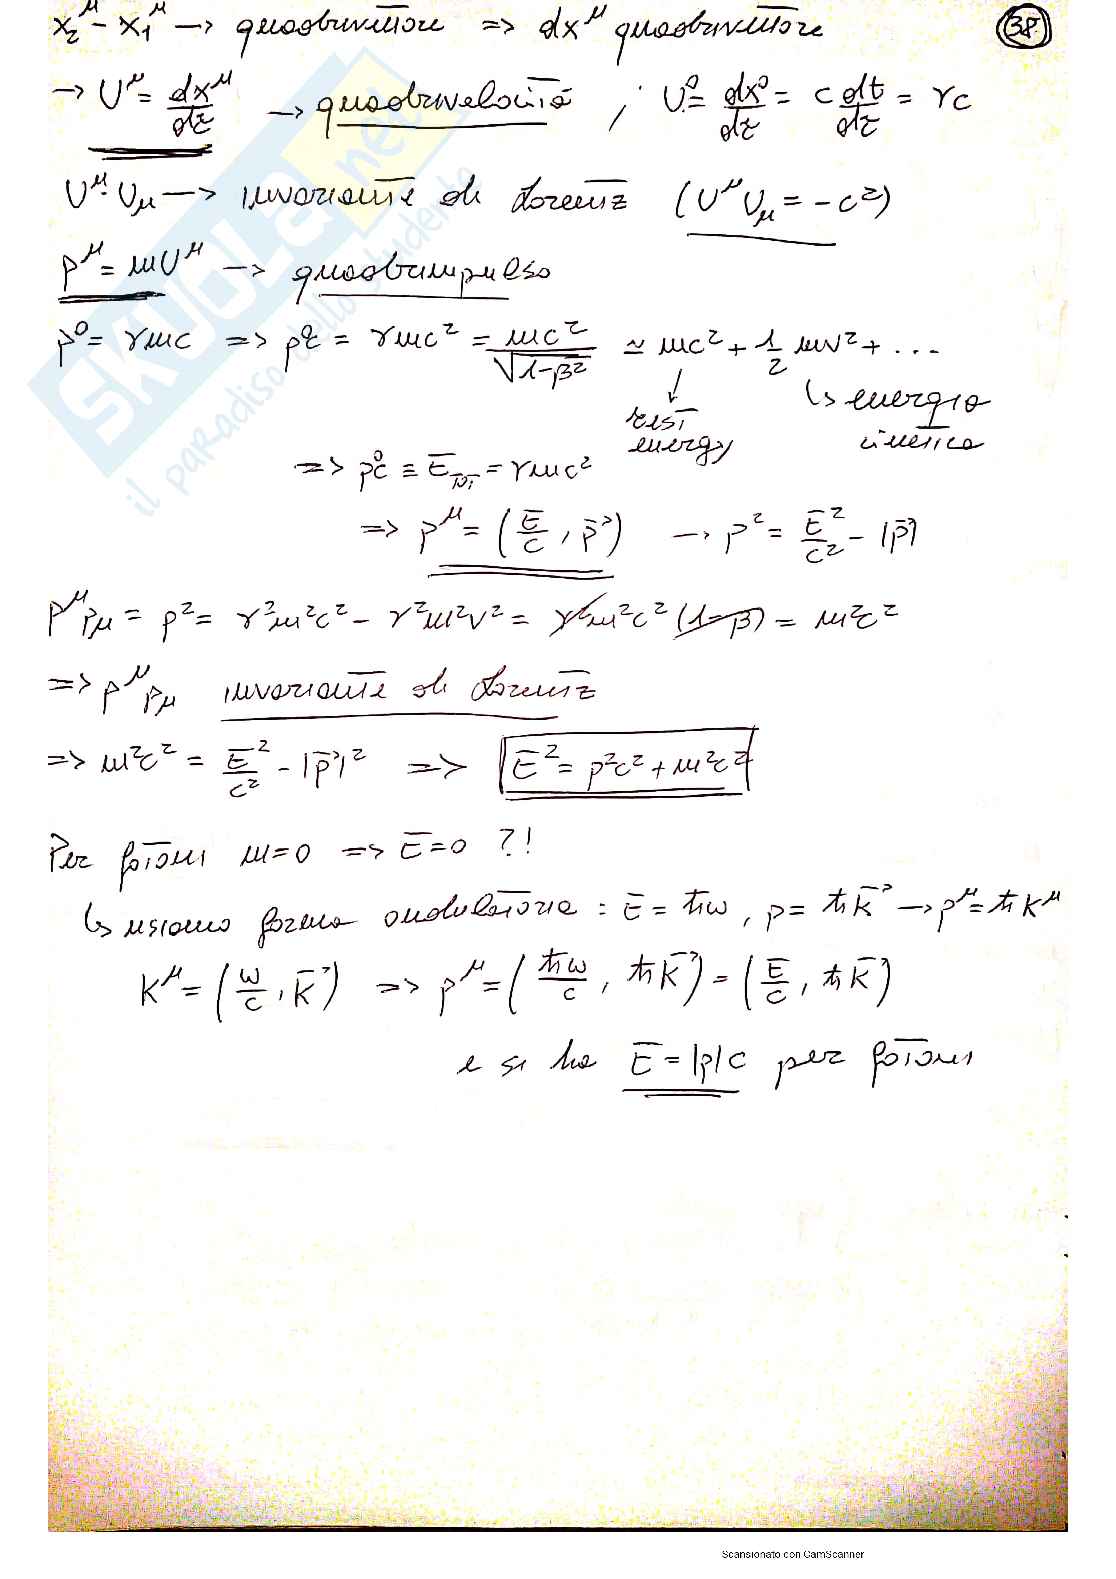 x₂^μ - x₁^μ → quadrivettore => dx^μ quadrivettore
38
→ U^μ = dx^μ/dτ → quadrivelocità ; U⁰ = dx⁰/dτ = c dt/dτ = γc
U^μ U_μ → invariante di Lorentz (U^μ U_μ = -c²)
p^μ = mU^μ → quadrimpulso
p⁰ = γmc => p⁰c = γmc² = mc²/√(1-β²) ≃ mc² + 1/2 mv² + ...
rest energy
↳ energia cinetica
=> p⁰c ≡ E = γmc²
=> p^μ = (E/c, p⃗) → p² = E²/c² - |p⃗|
p^μ p_μ = p² = γ²m²c² - γ²m²v² = γ²m²c²(1-β) = m²c²
=> p^μ p_μ invariante di Lorentz
=> m²c² = E²/c² - |p⃗|² => E² = p²c² + m²c²
Per fotoni m=0 => E=0 ?!
↳ usiamo forma ondulatoria : E = ħω, p = ħk⃗ → p^μ = ħk^μ
k^μ = (ω/c, k⃗) => p^μ = (ħω/c, ħk⃗) = (E/c, ħk⃗)
e si ha E = |p|c per fotoni
SKUOLA.net
il paradiso dello studente
Scansionato con CamScanner